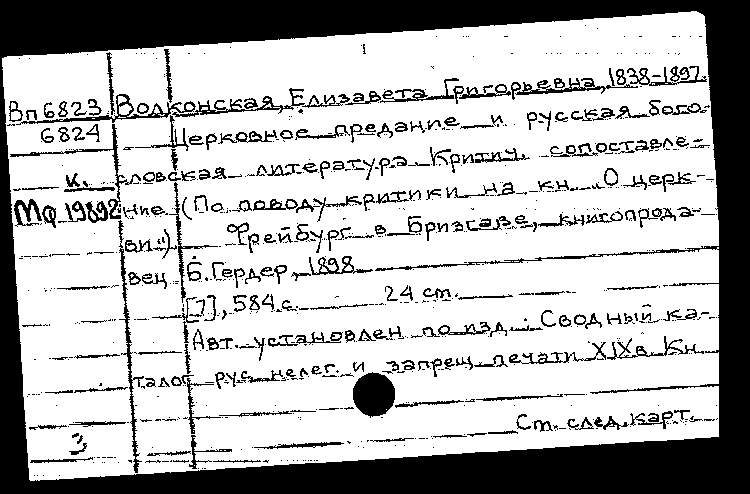 1
Вп6823 Волконская, Елизавета Григорьевна, 1838-1897.
6824 Церковное предание и русская бого-
к. словская литература. Критич. сопоставле-
Мф 19892 ние (По поводу критики на кн. „О церк-
ви“). Фрейбург в Бризгаве, книгопрода-
вец Б. Гердер, 1898
584 с. 24 см.
Авт. установлен по изд.: Сводный ка-
талог рус. нелег. и запрещ. печати XIX в. Кн.
3 См. след. карт.